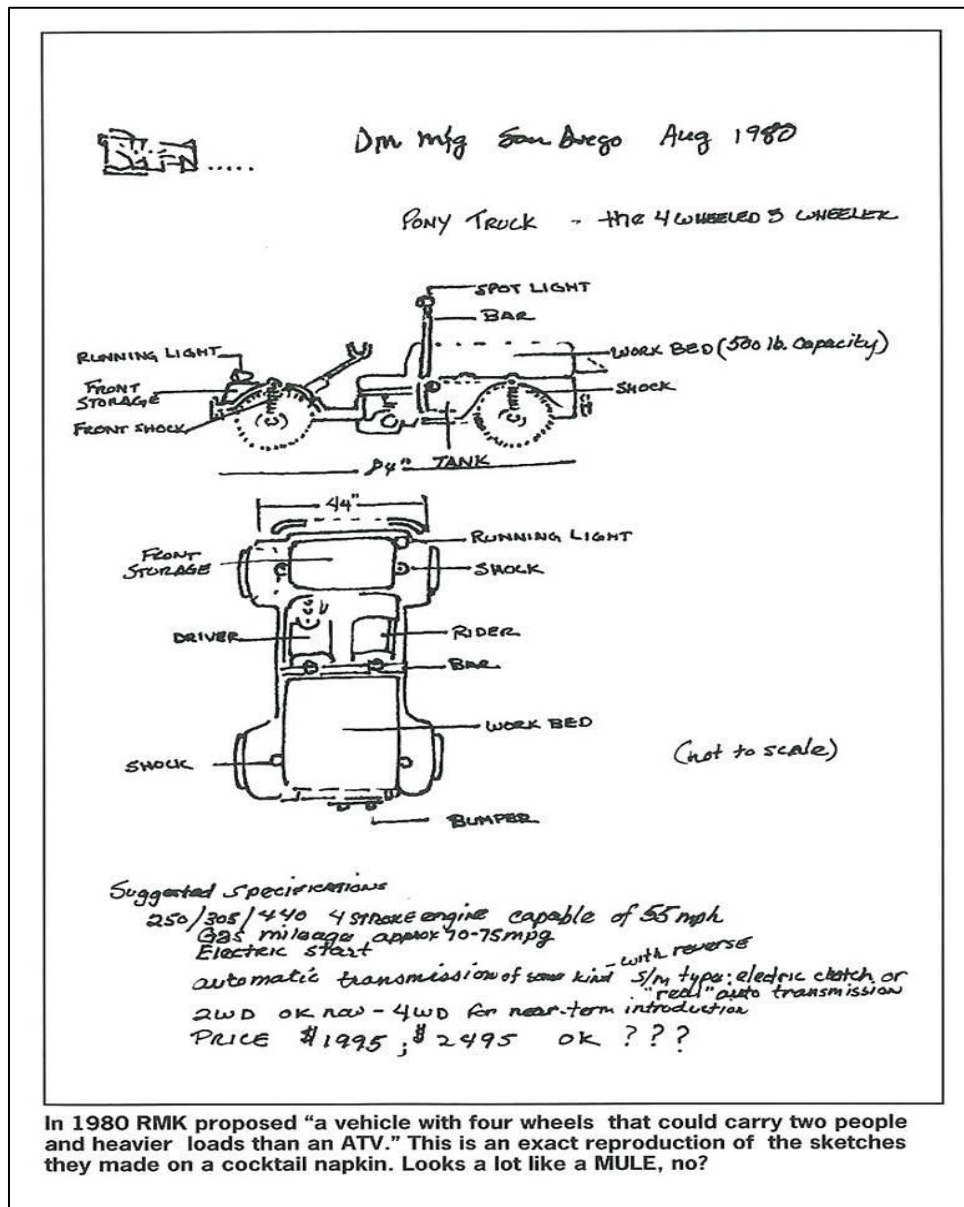 Dm Mfg San Diego Aug 1980
PONY TRUCK - the 4 WHEELED 3 WHEELER
SPOT LIGHT
BAR
RUNNING LIGHT
WORK BED (500 lb. capacity)
FRONT STORAGE
SHOCK
FRONT SHOCK
TANK
84"
44"
RUNNING LIGHT
FRONT STORAGE
SHOCK
DRIVER
RIDER
BAR
WORK BED
(not to scale)
SHOCK
BUMPER
Suggested Specifications
250/305/440 4 STROKE engine capable of 55 mph
Gas mileage approx 70-75mpg
Electric start
automatic transmission of some kind - with reverse
S/M type: electric clutch or
"real" auto transmission
2WD ok now - 4WD for near-term introduction
PRICE $1995; $2495 OK ???
In 1980 RMK proposed “a vehicle with four wheels that could carry two people
and heavier loads than an ATV.” This is an exact reproduction of the sketches
they made on a cocktail napkin. Looks a lot like a MULE, no?